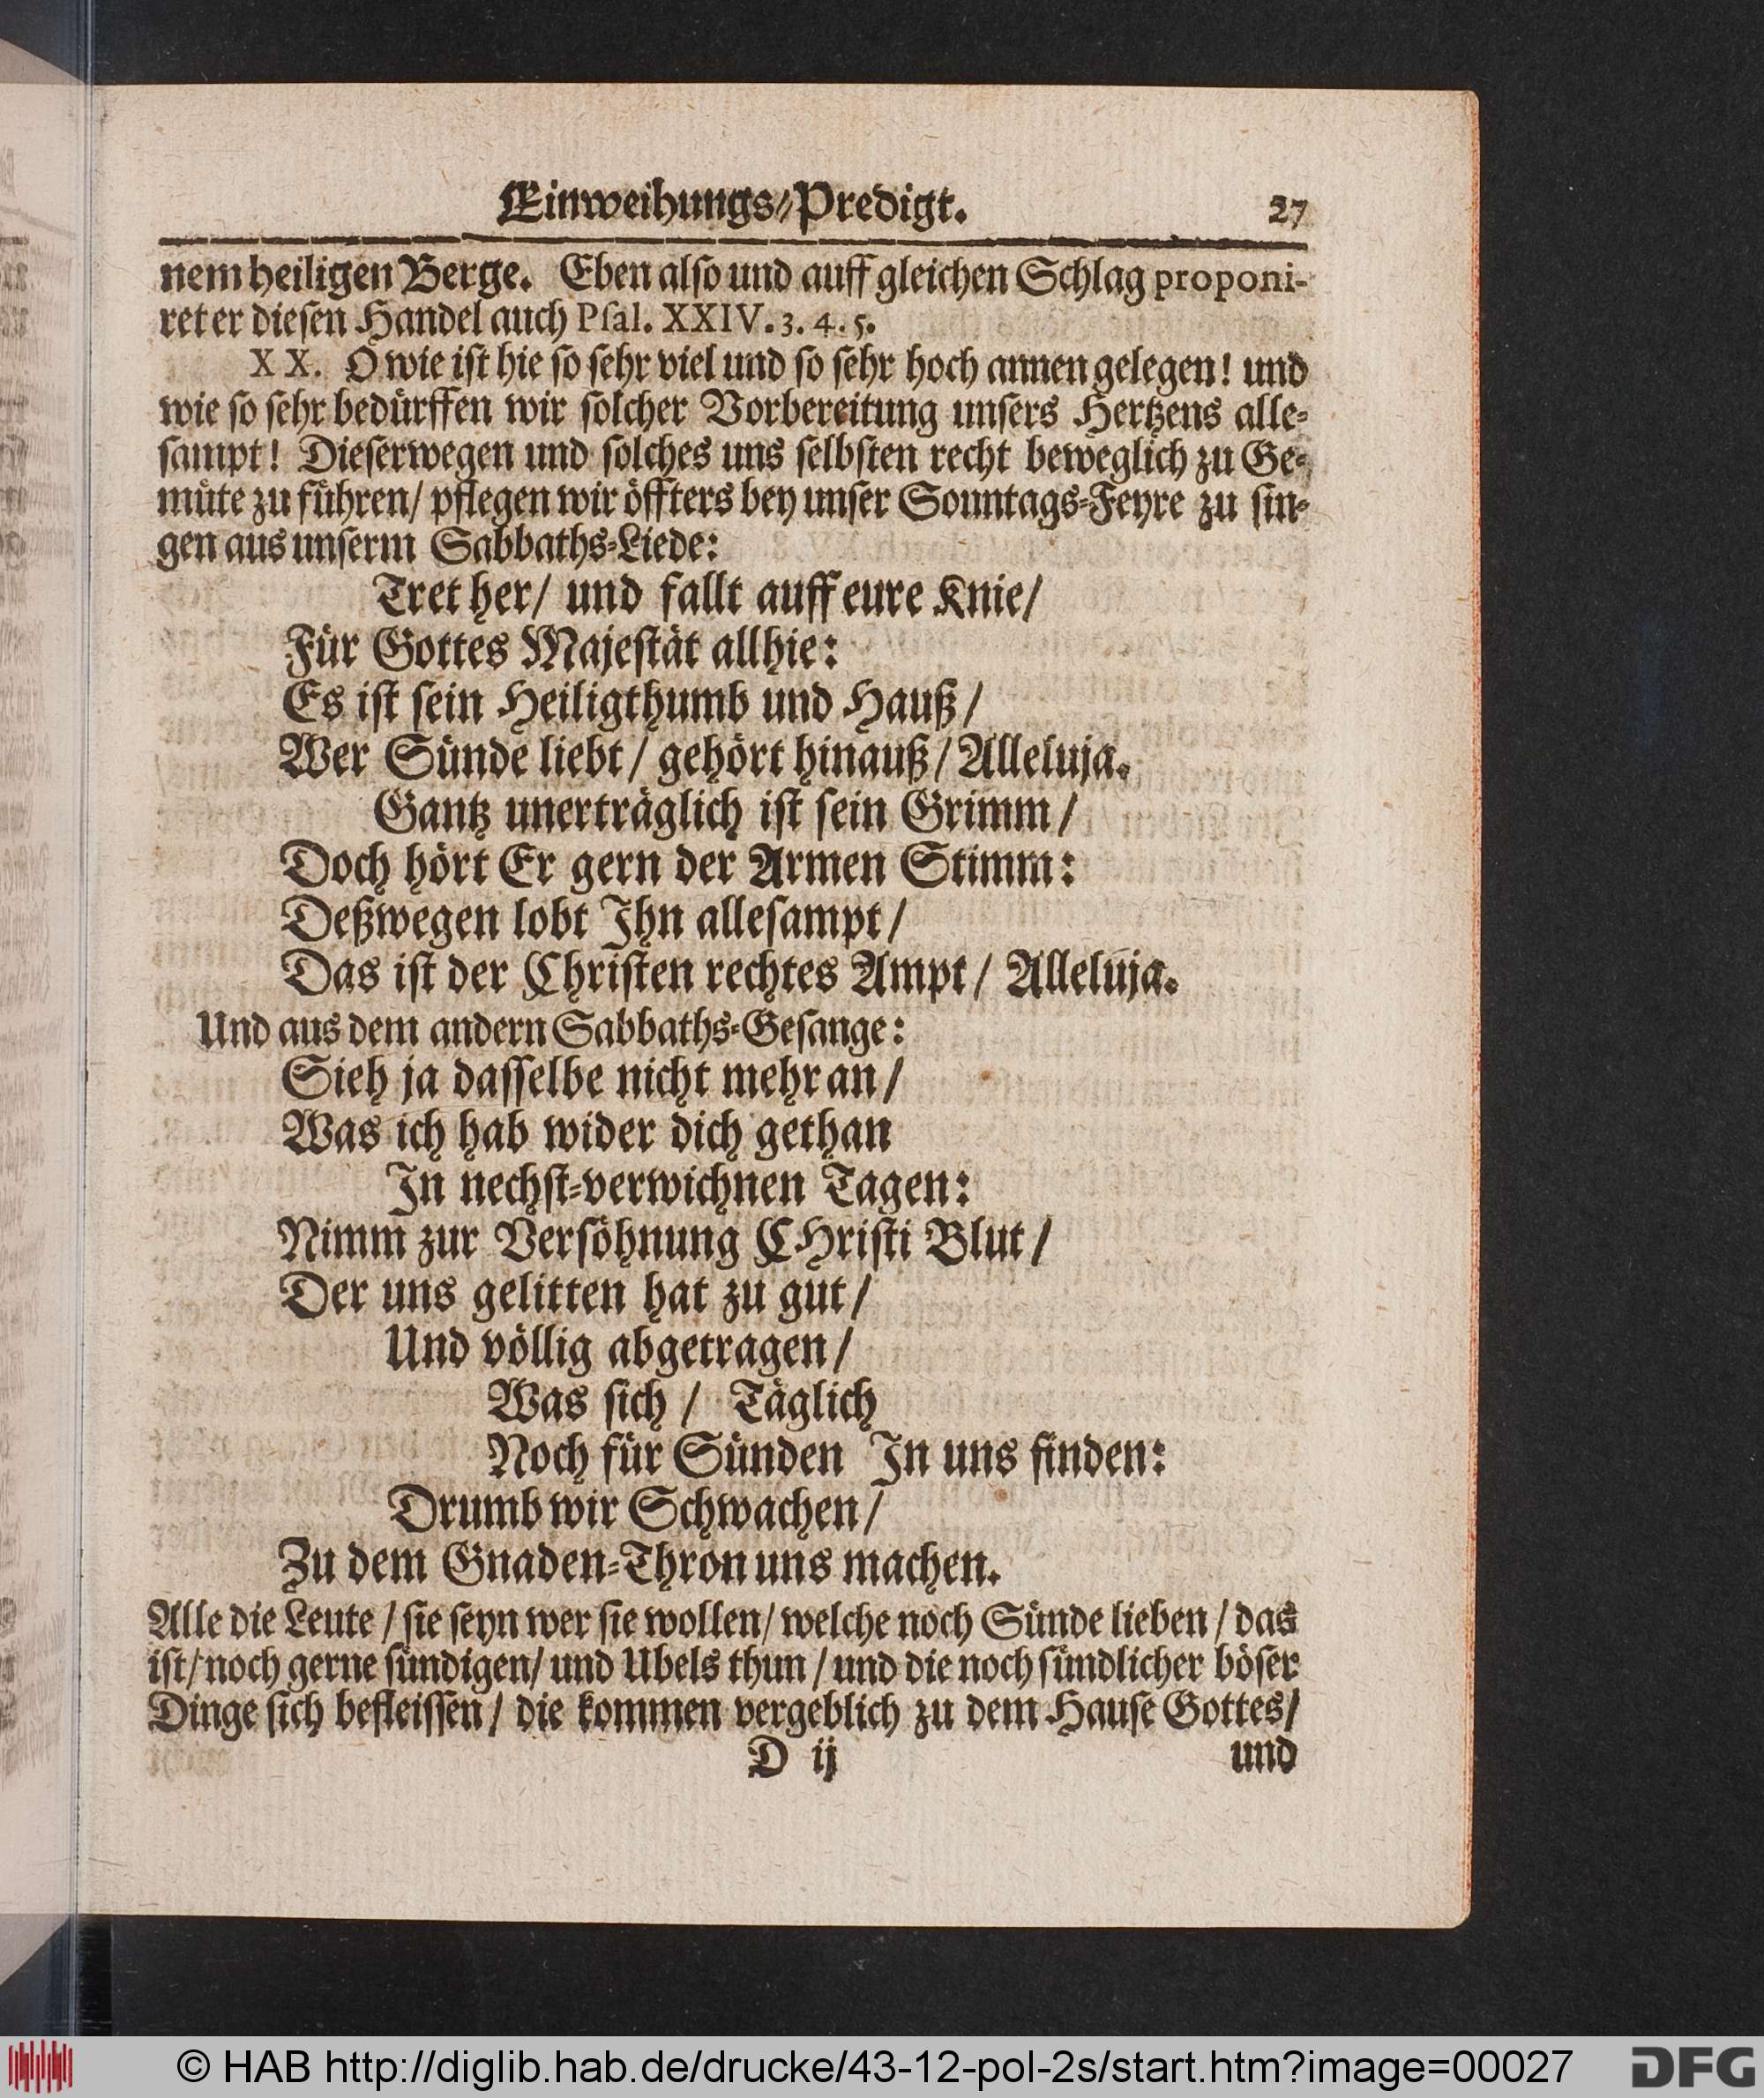 Einweihungs-Predigt. 27
nem heiligen Berge. Eben also und auff gleichen Schlag proponi-
ret er diesen Handel auch Psal. XXIV. 3. 4. 5.
XX. O wie ist hie so sehr viel und so sehr hoch annen gelegen! und
wie so sehr bedürffen wir solcher Vorbereitung unsers Hertzens alle-
sampt! Dieserwegen und solches uns selbsten recht beweglich zu Ge-
müte zu führen/ pflegen wir öffters bey unser Sonntags-Feyre zu sin-
gen aus unserm Sabbaths-Liede:
Tret her/ und fallt auff eure Knie/
Für Gottes Majestät allhie:
Es ist sein Heiligthumb und Hauß/
Wer Sünde liebt/ gehört hinauß/ Alleluja.
Gantz unerträglich ist sein Grimm/
Doch hört Er gern der Armen Stimm:
Deßwegen lobt Ihn allesampt/
Das ist der Christen rechtes Ampt/ Alleluja.
Und aus dem andern Sabbaths-Gesange:
Sieh ja dasselbe nicht mehr an/
Was ich hab wider dich gethan
In nechst-verwichnen Tagen:
Nimm zur Versöhnung CHristi Blut/
Der uns gelitten hat zu gut/
Und völlig abgetragen/
Was sich/ Täglich
Noch für Sünden In uns finden:
Drumb wir Schwachen/
Zu dem Gnaden-Thron uns machen.
Alle die Leute/ sie seyn wer sie wollen/ welche noch Sünde lieben/ das
ist/ noch gerne sündigen/ und Ubels thun/ und die noch sündlicher böser
Dinge sich befleissen/ die kommen vergeblich zu dem Hause Gottes/
D ij und
© HAB http://diglib.hab.de/drucke/43-12-pol-2s/start.htm?image=00027 DFG